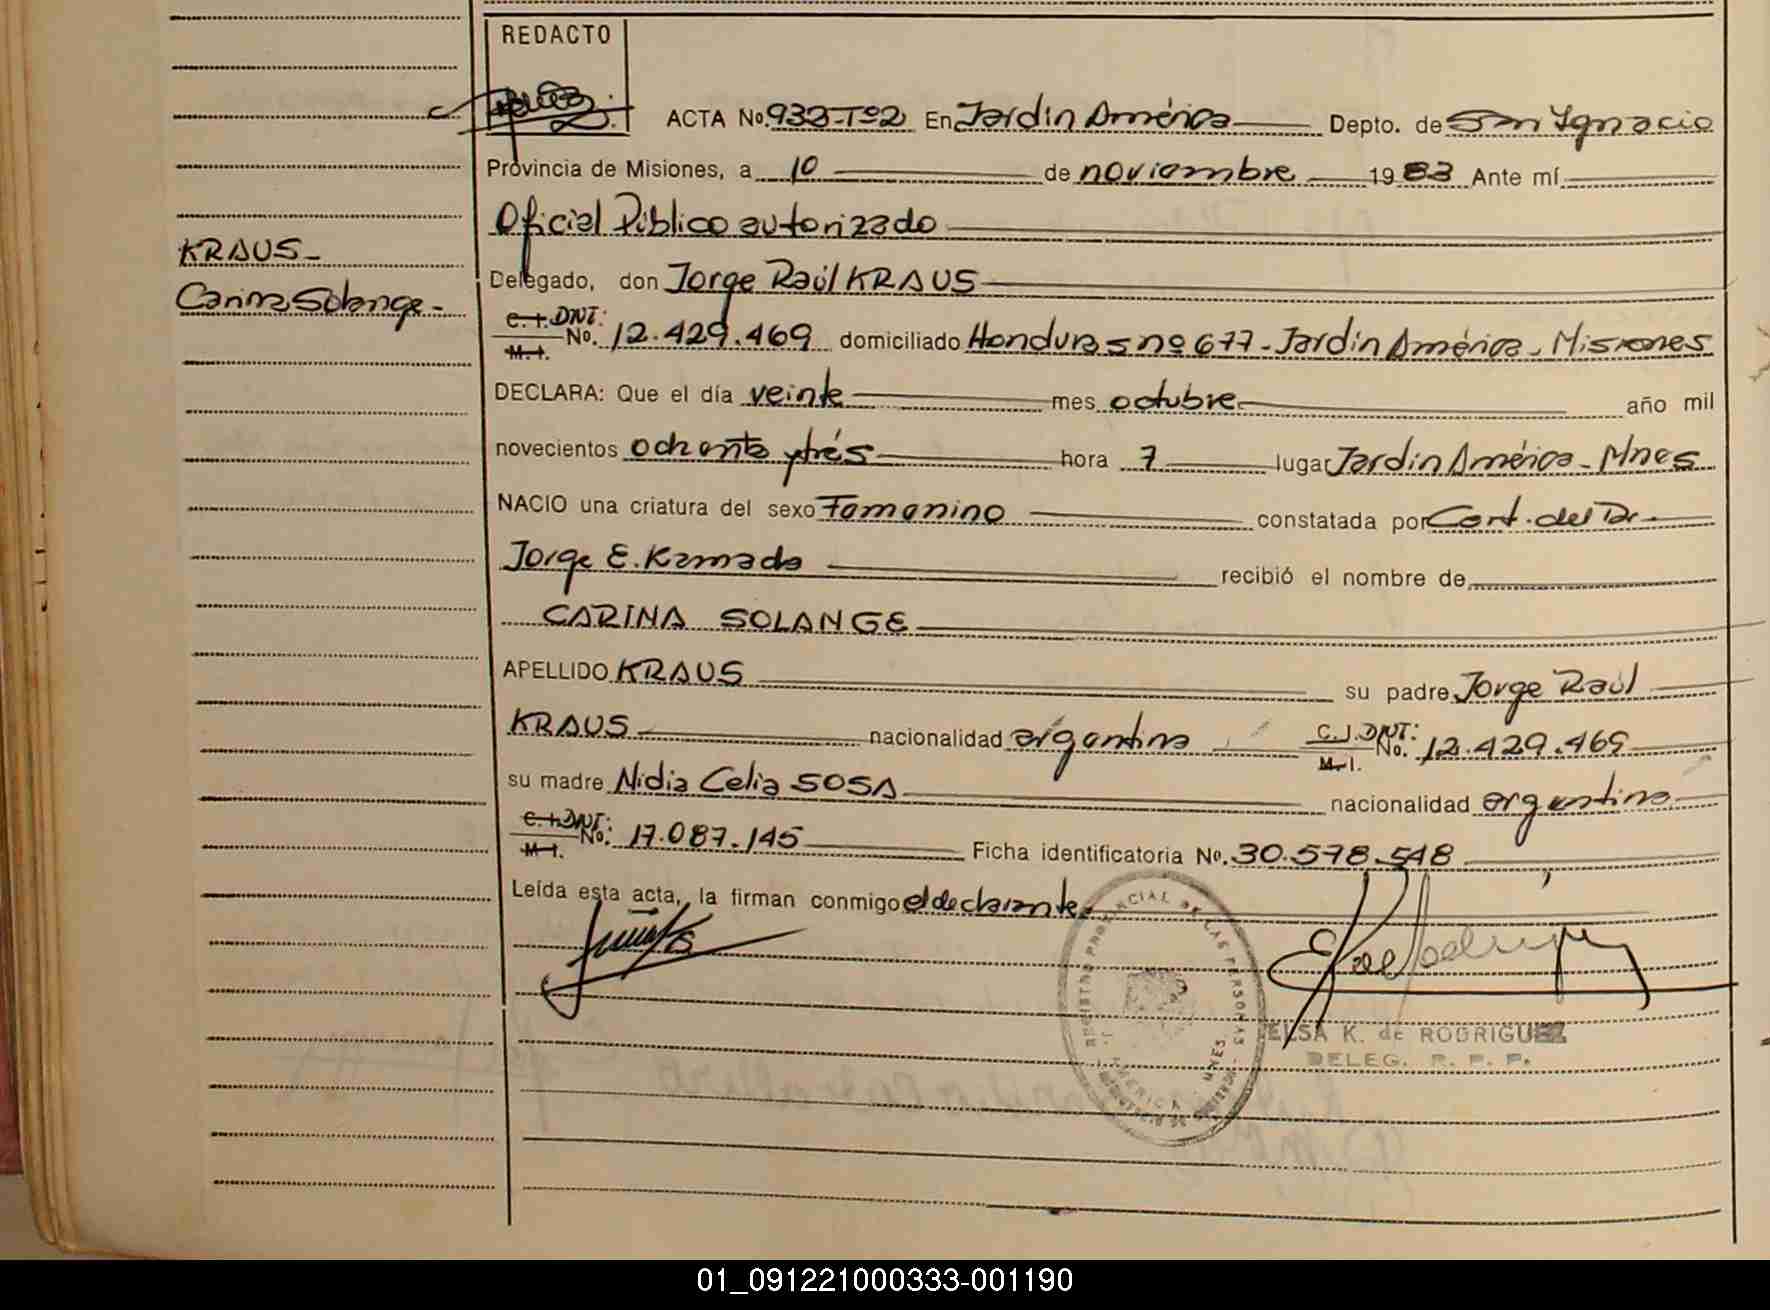 REDACTO
ACTA No. 933-Tº2 En Jardín América Depto. de San Ignacio
Provincia de Misiones, a 10 de noviembre 1983 Ante mí
Oficial Público autorizado
KRAUS-
Delegado, don Jorge Raúl KRAUS
Carina Solange-
C.I. DNI: M.I. No. 12.429.469 domiciliado Honduras nº 677-Jardín América, Misiones
DECLARA: Que el día veinte mes octubre año mil
novecientos ochenta y trés hora 7 lugar Jardín América-Mnes
NACIO una criatura del sexo Femenino constatada por Cert. del Dr.
Jorge E. Kamada recibió el nombre de
CARINA SOLANGE
APELLIDO KRAUS su padre Jorge Raúl
KRAUS nacionalidad argentina C.I. DNI: M.I. No. 12.429.469
su madre Nidia Celia SOSA nacionalidad argentina
C.I. DNI: M.I. No. 17.087.145 Ficha identificatoria No. 30.578.548
Leída esta acta, la firman conmigo el declarante.
REGISTRO PROVINCIAL DE LAS PERSONAS
J. AMERICA MNES.
ELSA K. de RODRIGUEZ
DELEG. R. P. P.
01_091221000333-001190